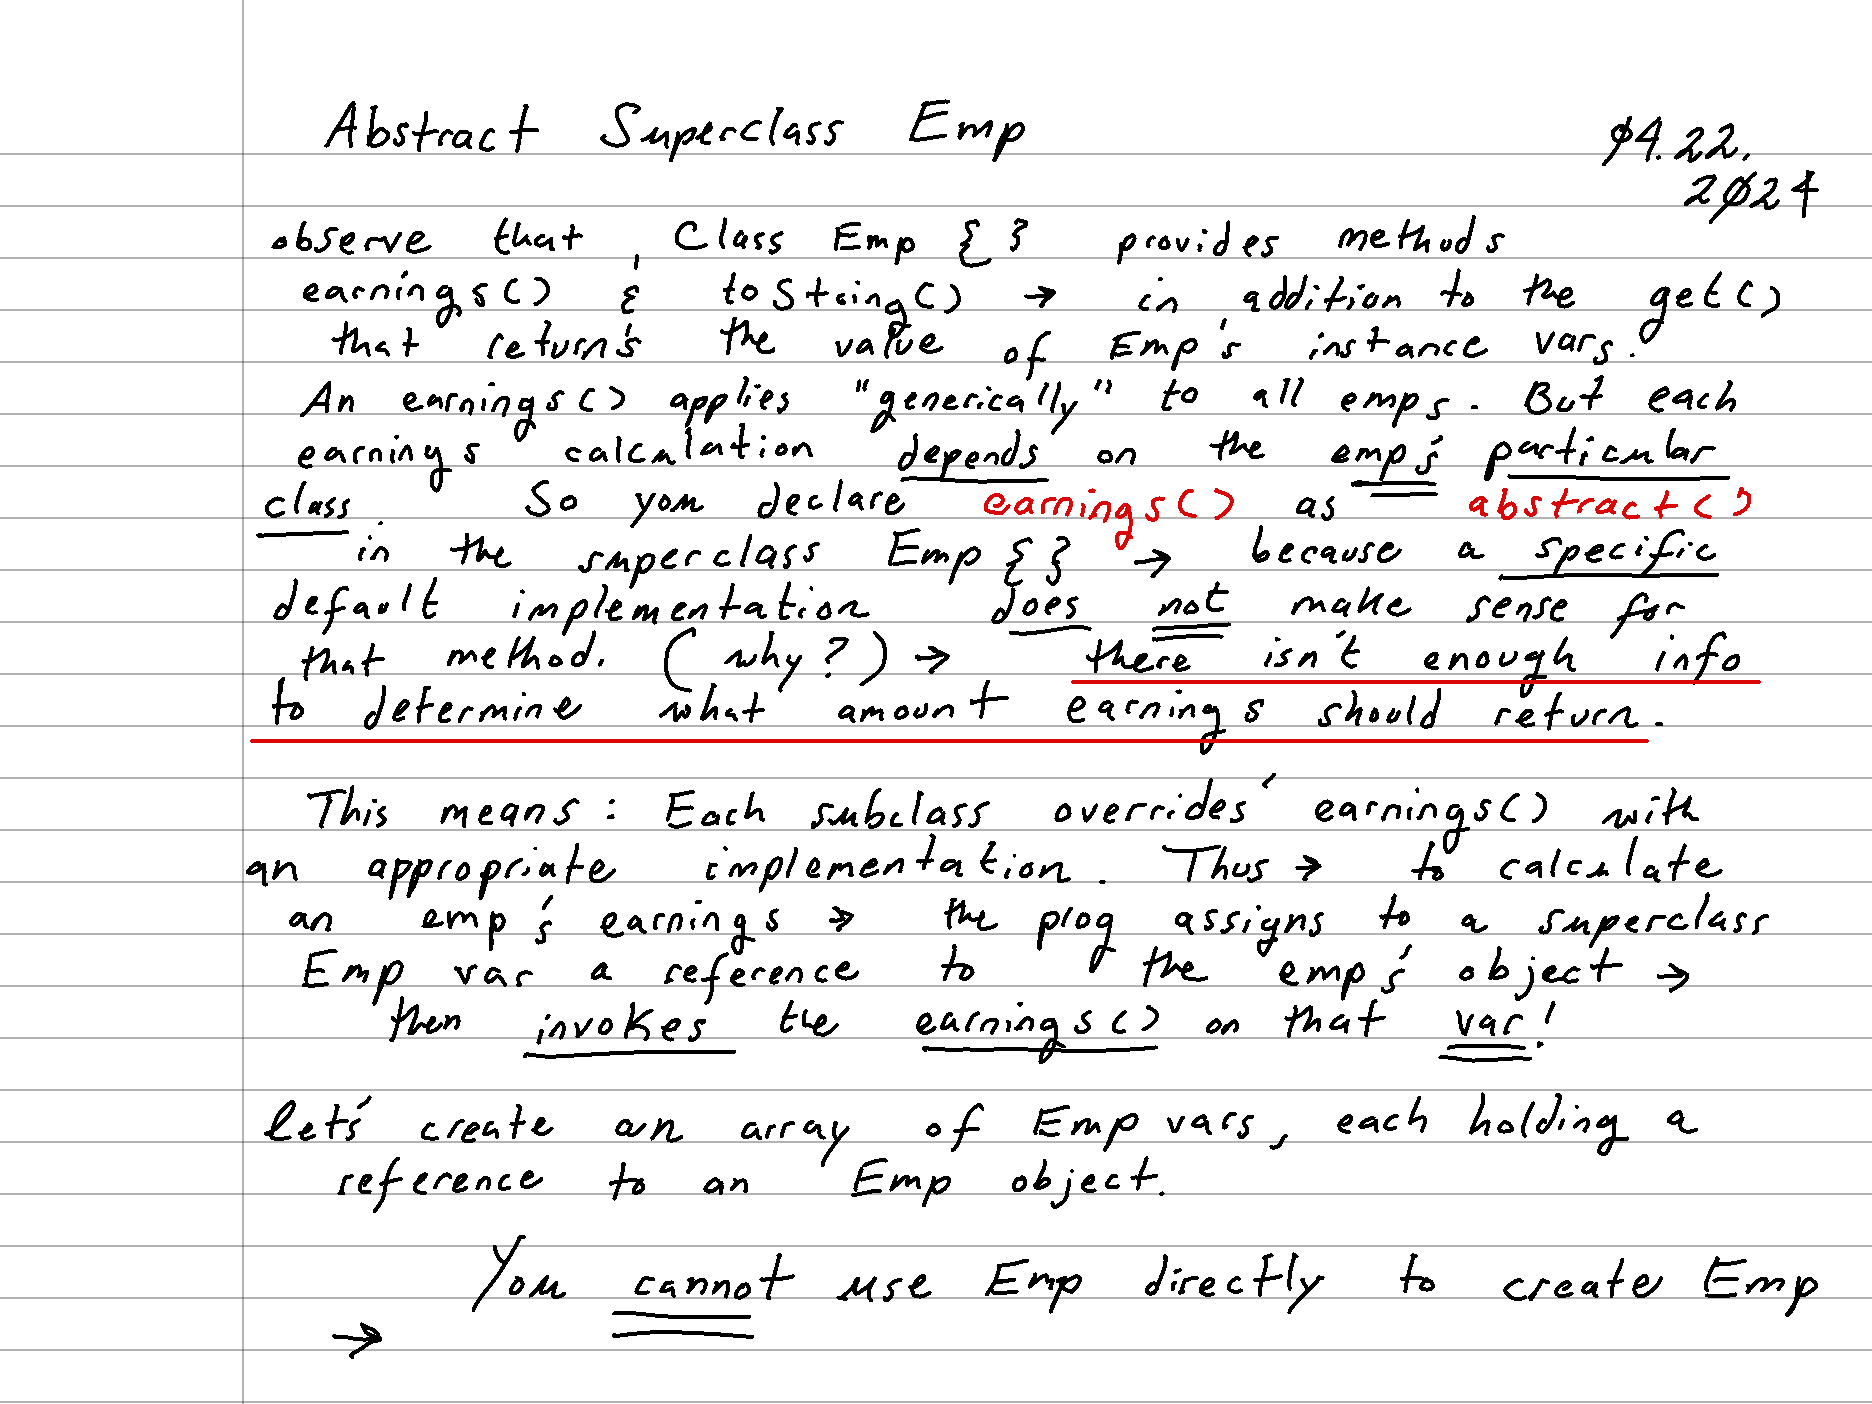 Abstract Superclass Emp
04.22.
2024
observe that, Class Emp { } provides methods
earnings() & toString() → in addition to the get()
that return's the value of Emp's instance vars.
An earnings() applies "generically" to all emps. But each
earnings calculation depends on the emp's particular
class So you declare earnings() as abstract()
in the superclass Emp { } → because a specific
default implementation does not make sense for
that method. (why?) → there isn't enough info
to determine what amount earnings should return.
This means: Each subclass overrides' earnings() with
an appropriate implementation. Thus → to calculate
an emp's earnings → the prog assigns to a superclass
Emp var a reference to the emp's object →
then invokes the earnings() on that var!
let's create an array of Emp vars, each holding a
reference to an Emp object.
You cannot use Emp directly to create Emp
→